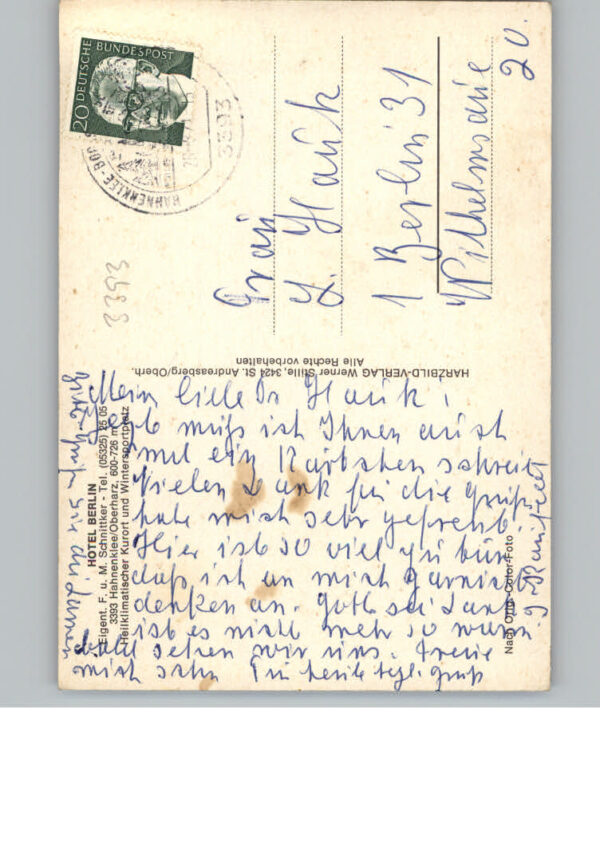 20 DEUTSCHE BUNDESPOST
HAHNENKLEE-BOC
3393
3393
Frau
Hauk
1 Berlin 31
Wilhelmsaue
20.
HARZBILD-VERLAG Werner Stille, 3424 St. Andreasberg/Oberh.
Alle Rechte vorbehalten
HOTEL BERLIN
Eigent. F. u. M. Schnittker - Tel. (05325) 25 05
3393 Hahnenklee/Oberharz, 600-726 m
Heilklimatischer Kurort und Wintersportplatz
Nach Orig.-Color-Foto
Mein liebe Hauk
muß ich Ihnen auch
mal ein Kärtchen schreib
Vielen Dank für die Grüße
habe mich sehr gefreut.
Hier ist so viel zu tun
daß ich an mich garnicht
denken an. Gott sei Dank
ist es nicht mehr so warm
bald sehen wir uns. Freue
mich schon für heute herzl. gruß